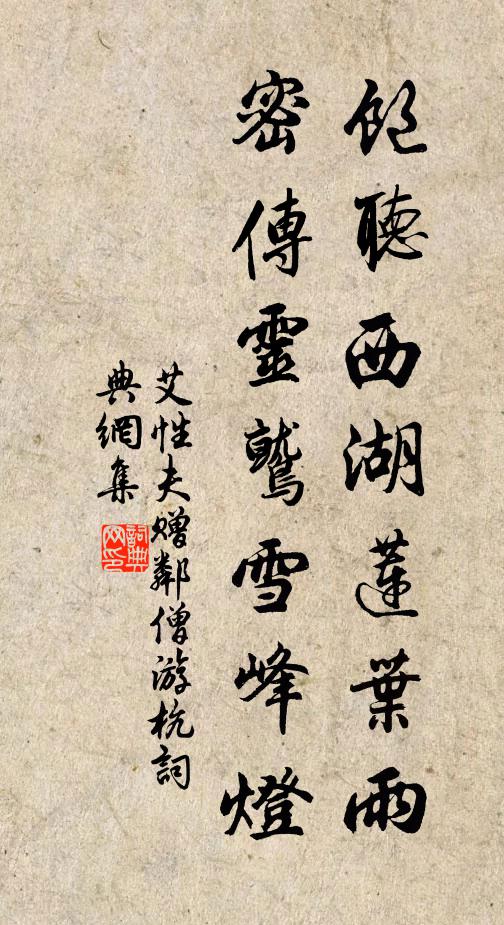 飽聽西湖蓮葉雨
密傳靈鷲雪峰燈
艾性夫贈鄰僧游杭詞
典網集
詞典
网印